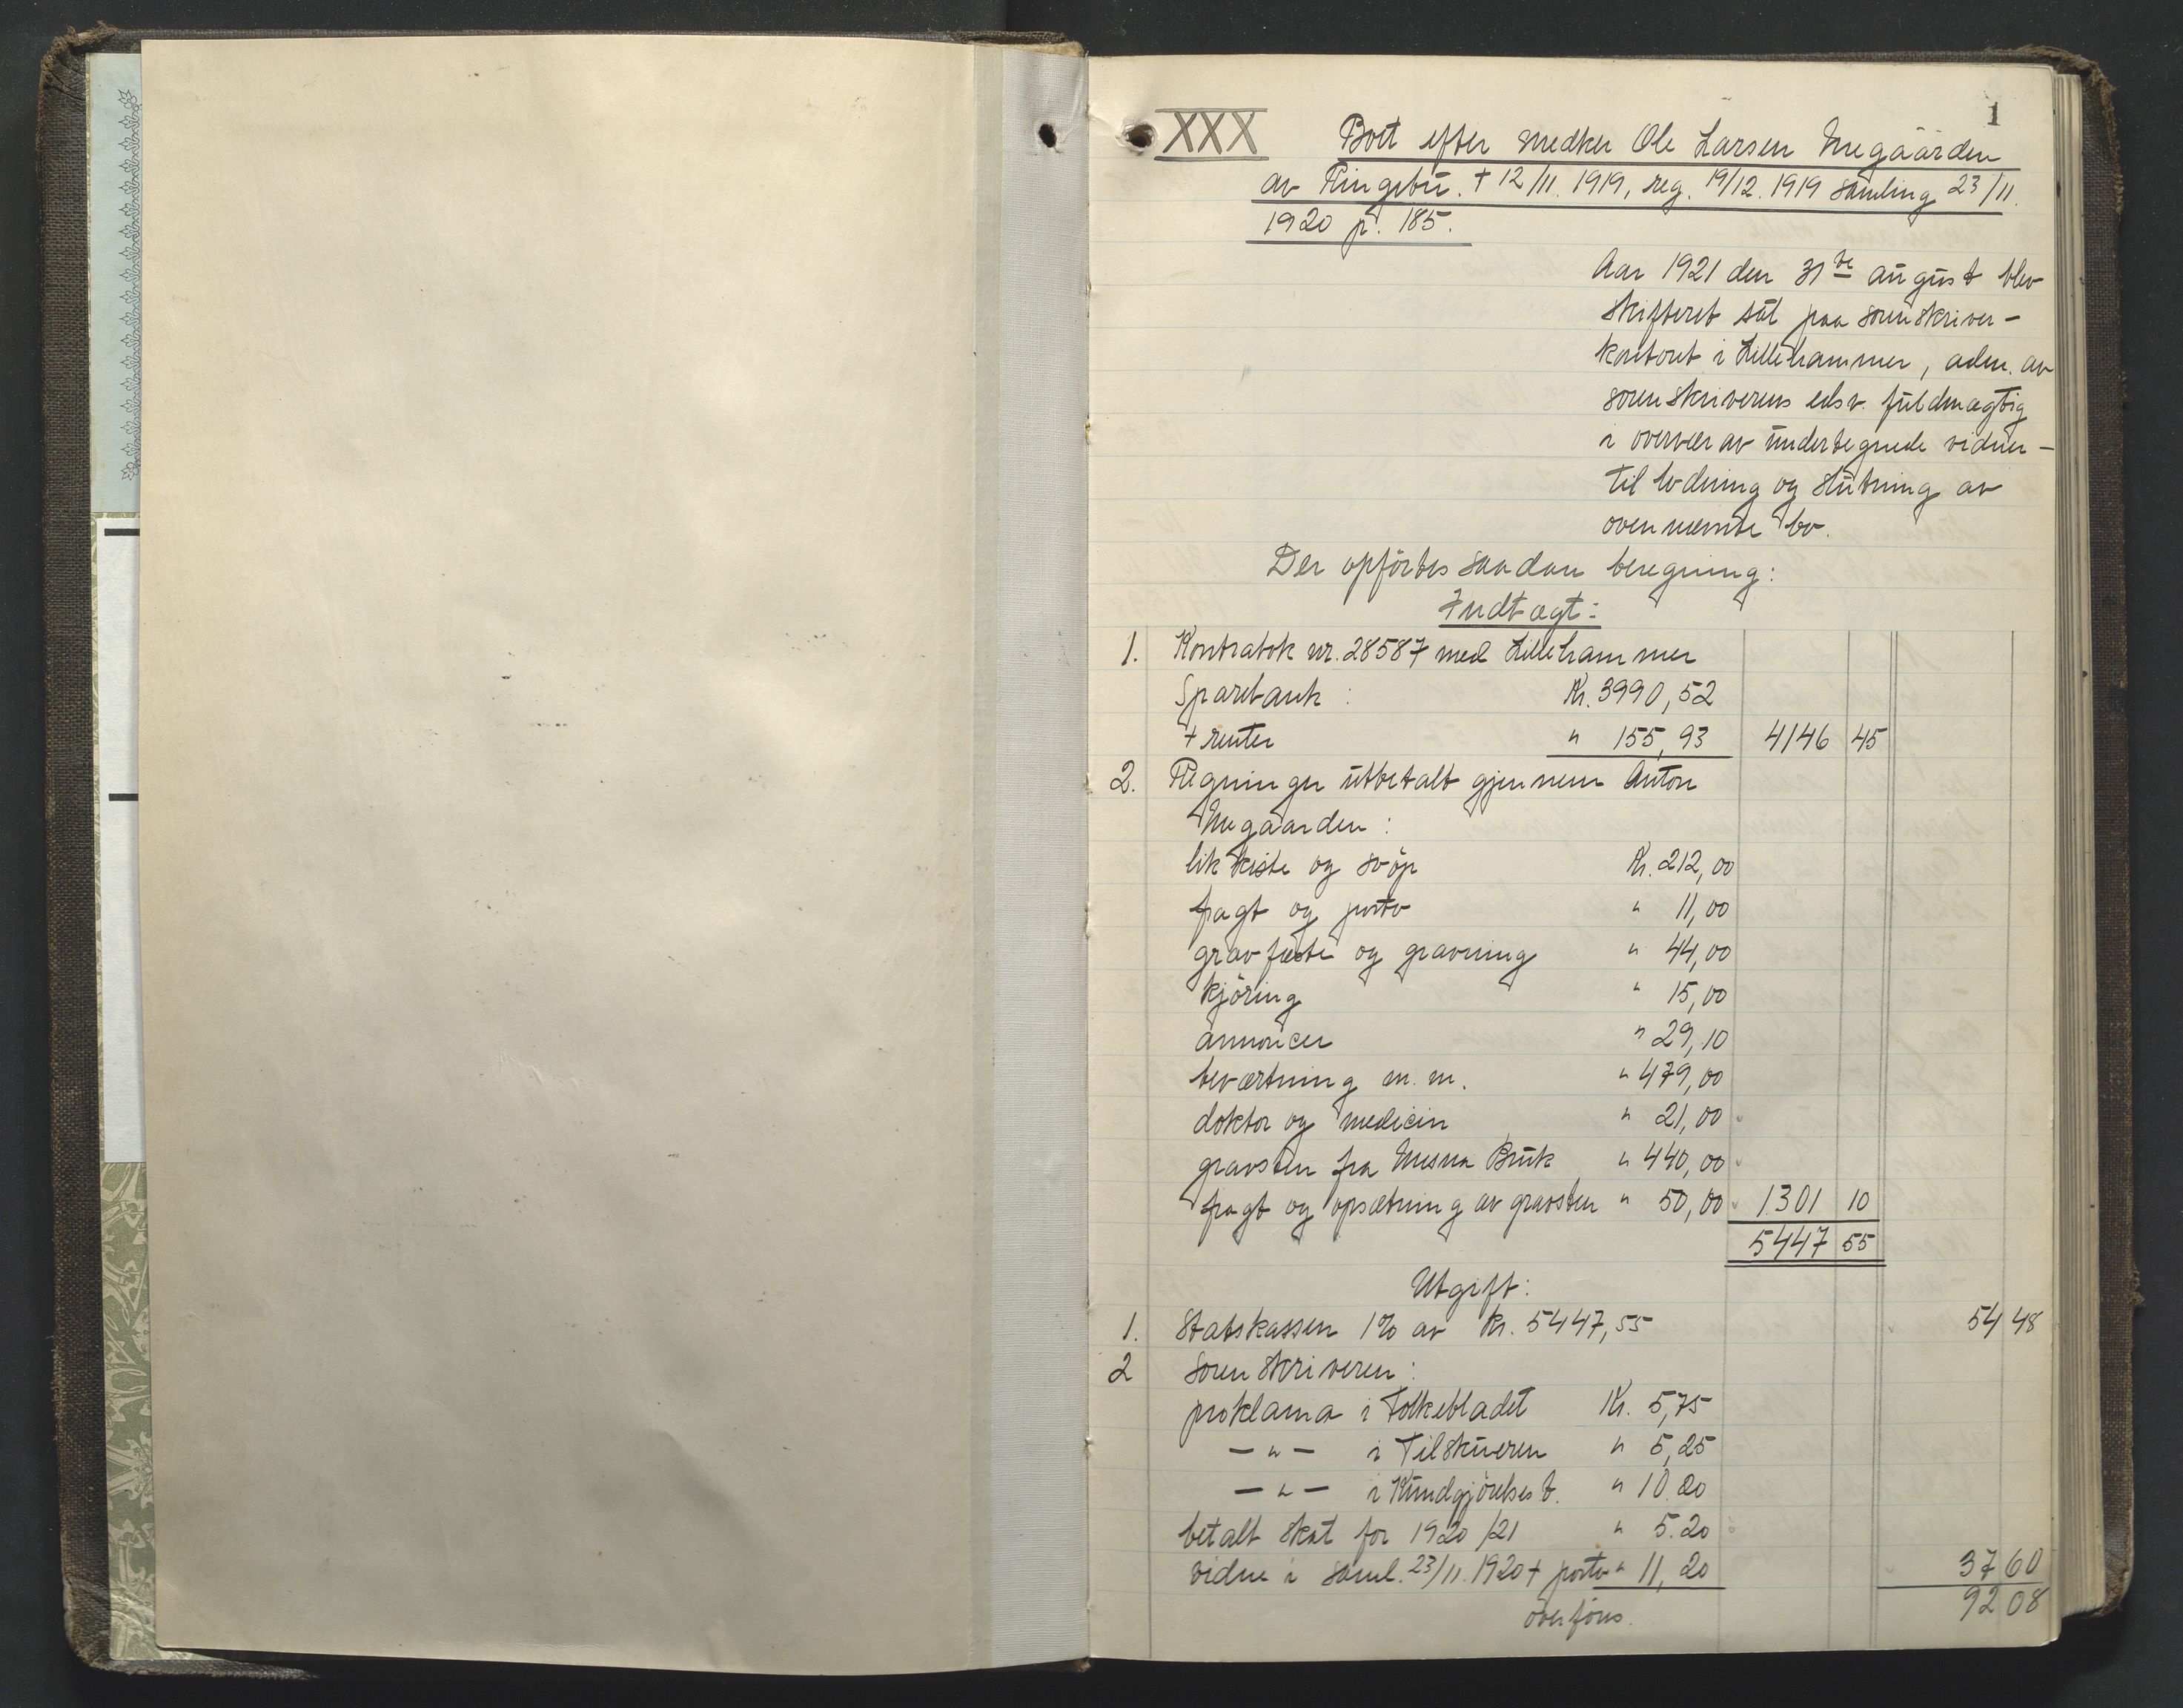 1
XXX Boet efter snedker Ole Larsen Megaarden
av Ringebu. + 12/11. 1919, reg. 19/12. 1919 samling 23/11.
1920 p. 185.
Aar 1921 den 31te august blev
skifteret sat paa sorenskriver-
kontoret i Lillehammer, adm. av
sorenskriverens edsv. fuldmægtig
i overvær av undertegnede vidner -
til lodning og slutning av
ovennævnte bo.
Der opførtes saadan beregning:
Indtægt:
1. Kontrabok nr. 28587 med Lillehammer
Sparebank : Kr. 3990,52
+ renter " 155,93 4146 45
2. Regninger utbetalt gjennem Anton
Megaarden :
likkiste og svøp Kr. 212,00
fragt og porto " 11,00
gravfæste og gravning " 44,00
kjøring " 15,00
annoncer " 29,10
beværtning m.m. " 479,00
doktor og medicin " 21,00
gravsten fra Mesna Bruk " 440,00
fragt og opsætning av gravsten " 50,00 1301 10
5447 55
Utgift:
1. Statskassen 1% av Kr. 5447,55 54 48
2 Sorenskriveren :
proklama i Folkebladet Kr. 5,75
— " — i Tilskueren " 5,25
— " — i Kundgjørelsest. " 10.20
betalt skat for 1920/21 " 5.20
vidne i saml. 23/11. 1920 + porto " 11,20 37 60
overføres. 92 08